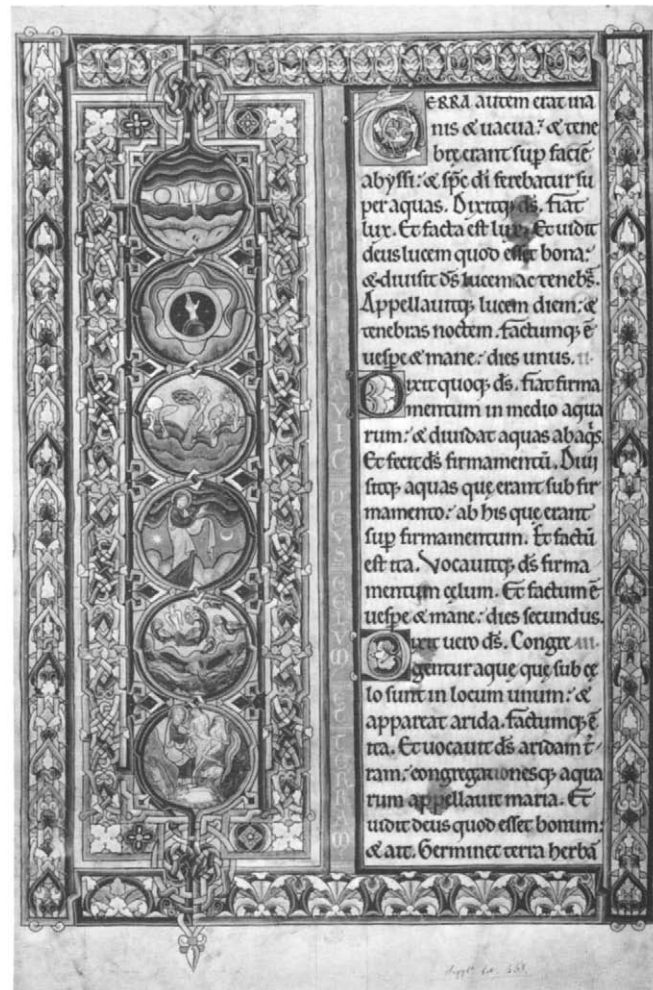 ERRA autem erat ina
nis & uacua: & tene
bre erant sup faciē
abyssi: & sp̄c di ferebatur su
per aquas. Dixitq; d̄s. fiat
lux. Et facta est lux. Et uidit
deus lucem quod esset bona:
& diuisit d̄s lucem ac tenebs̄.
Appellauitq; lucem diem: &
tenebras noctem. factumq; ē
uesp̄e & mane: dies unus. ii.
Dixit quoq; d̄s. fiat firma
mentum in medio aqua
rum: & diuidat aquas ab aq̄s.
Et fecit d̄s firmamentū. Diui
sitq; aquas quę erant sub fir
mamento: ab his quę erant
sup firmamentum. Et factū
est ita. Vocauitq; d̄s firma
mentum cęlum. Et factum ē
uesp̄e & mane: dies secundus.
Dixit uero d̄s. Congre iii.
gentur aquę quę sub cę
lo sunt in locum unum: &
appareat arida. factumq; ē
ita. Et uocauit d̄s aridam t̄
ram: congregationesq; aqua
rum appellauit maria. Et
uidit deus quod esset bonum:
& ait. Germinet terra herbā